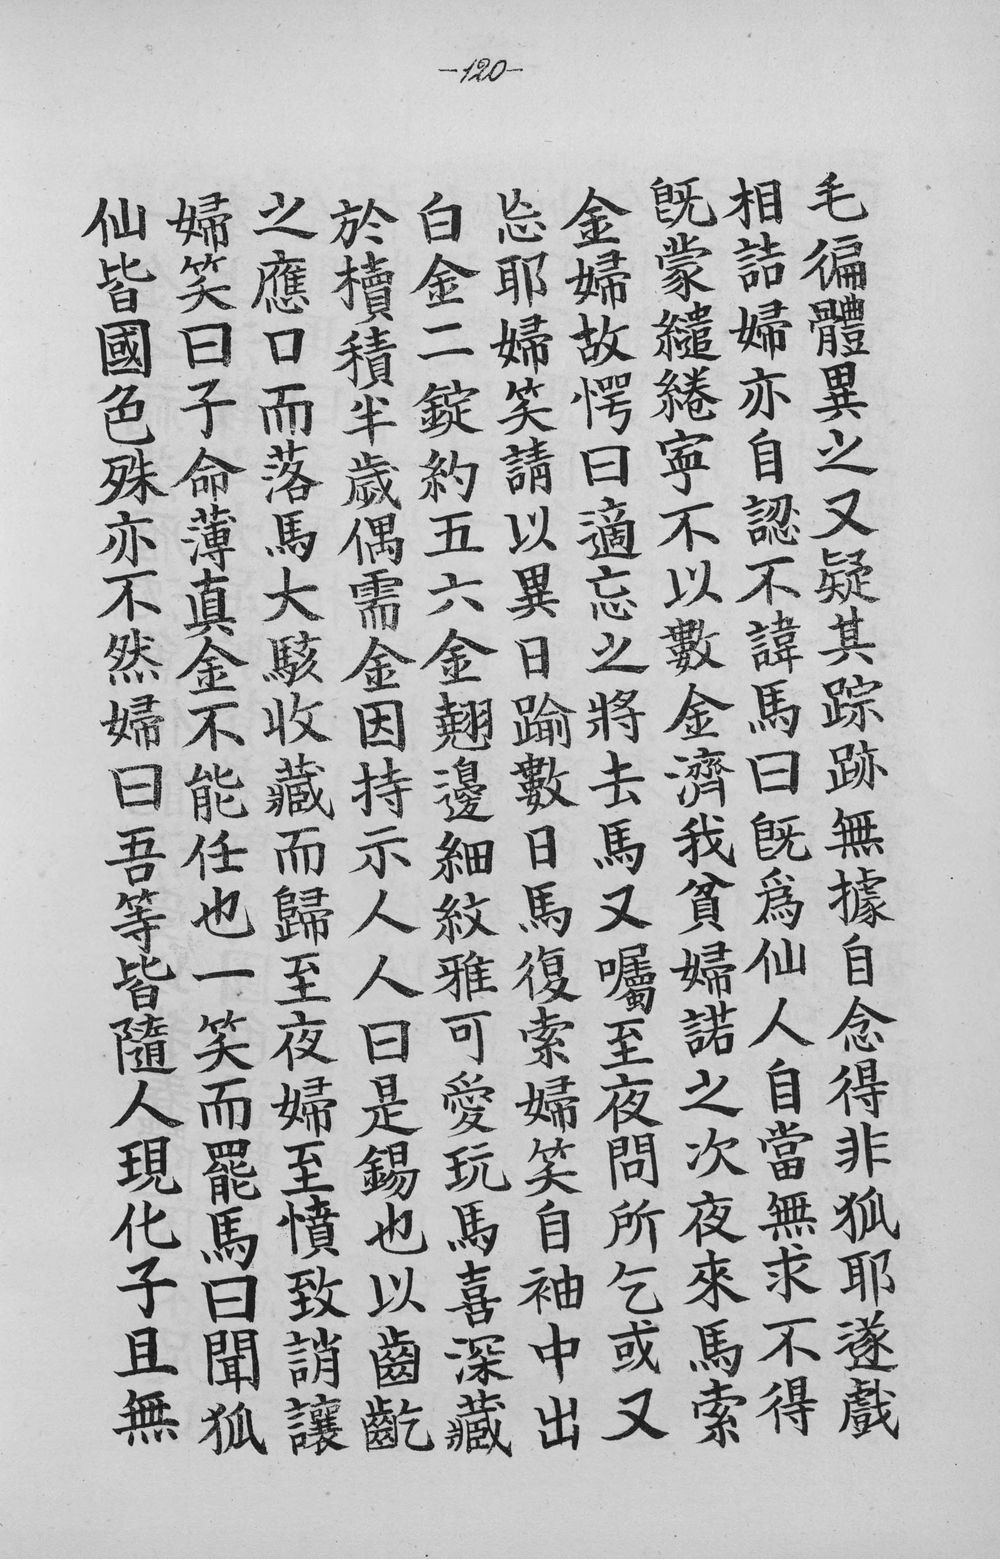 -120-
毛徧體異之又疑其踪跡無據自念得非狐耶遂戲
相詰婦亦自認不諱馬曰旣爲仙人自當無求不得
旣蒙繾綣寧不以數金濟我貧婦諾之次夜來馬索
金婦故愕曰適忘之將去馬又囑至夜問所乞或又
忘耶婦笑請以異日踰數日馬復索婦笑自袖中出
白金二錠約五六金翹邊細紋雅可愛玩馬喜深藏
於櫝積半歲偶需金因持示人人曰是錫也以齒齕
之應口而落馬大駭收藏而歸至夜婦至憤致誚讓
婦笑曰子命薄真金不能任也一笑而罷馬曰聞狐
仙皆國色殊亦不然婦曰吾等皆隨人現化子且無